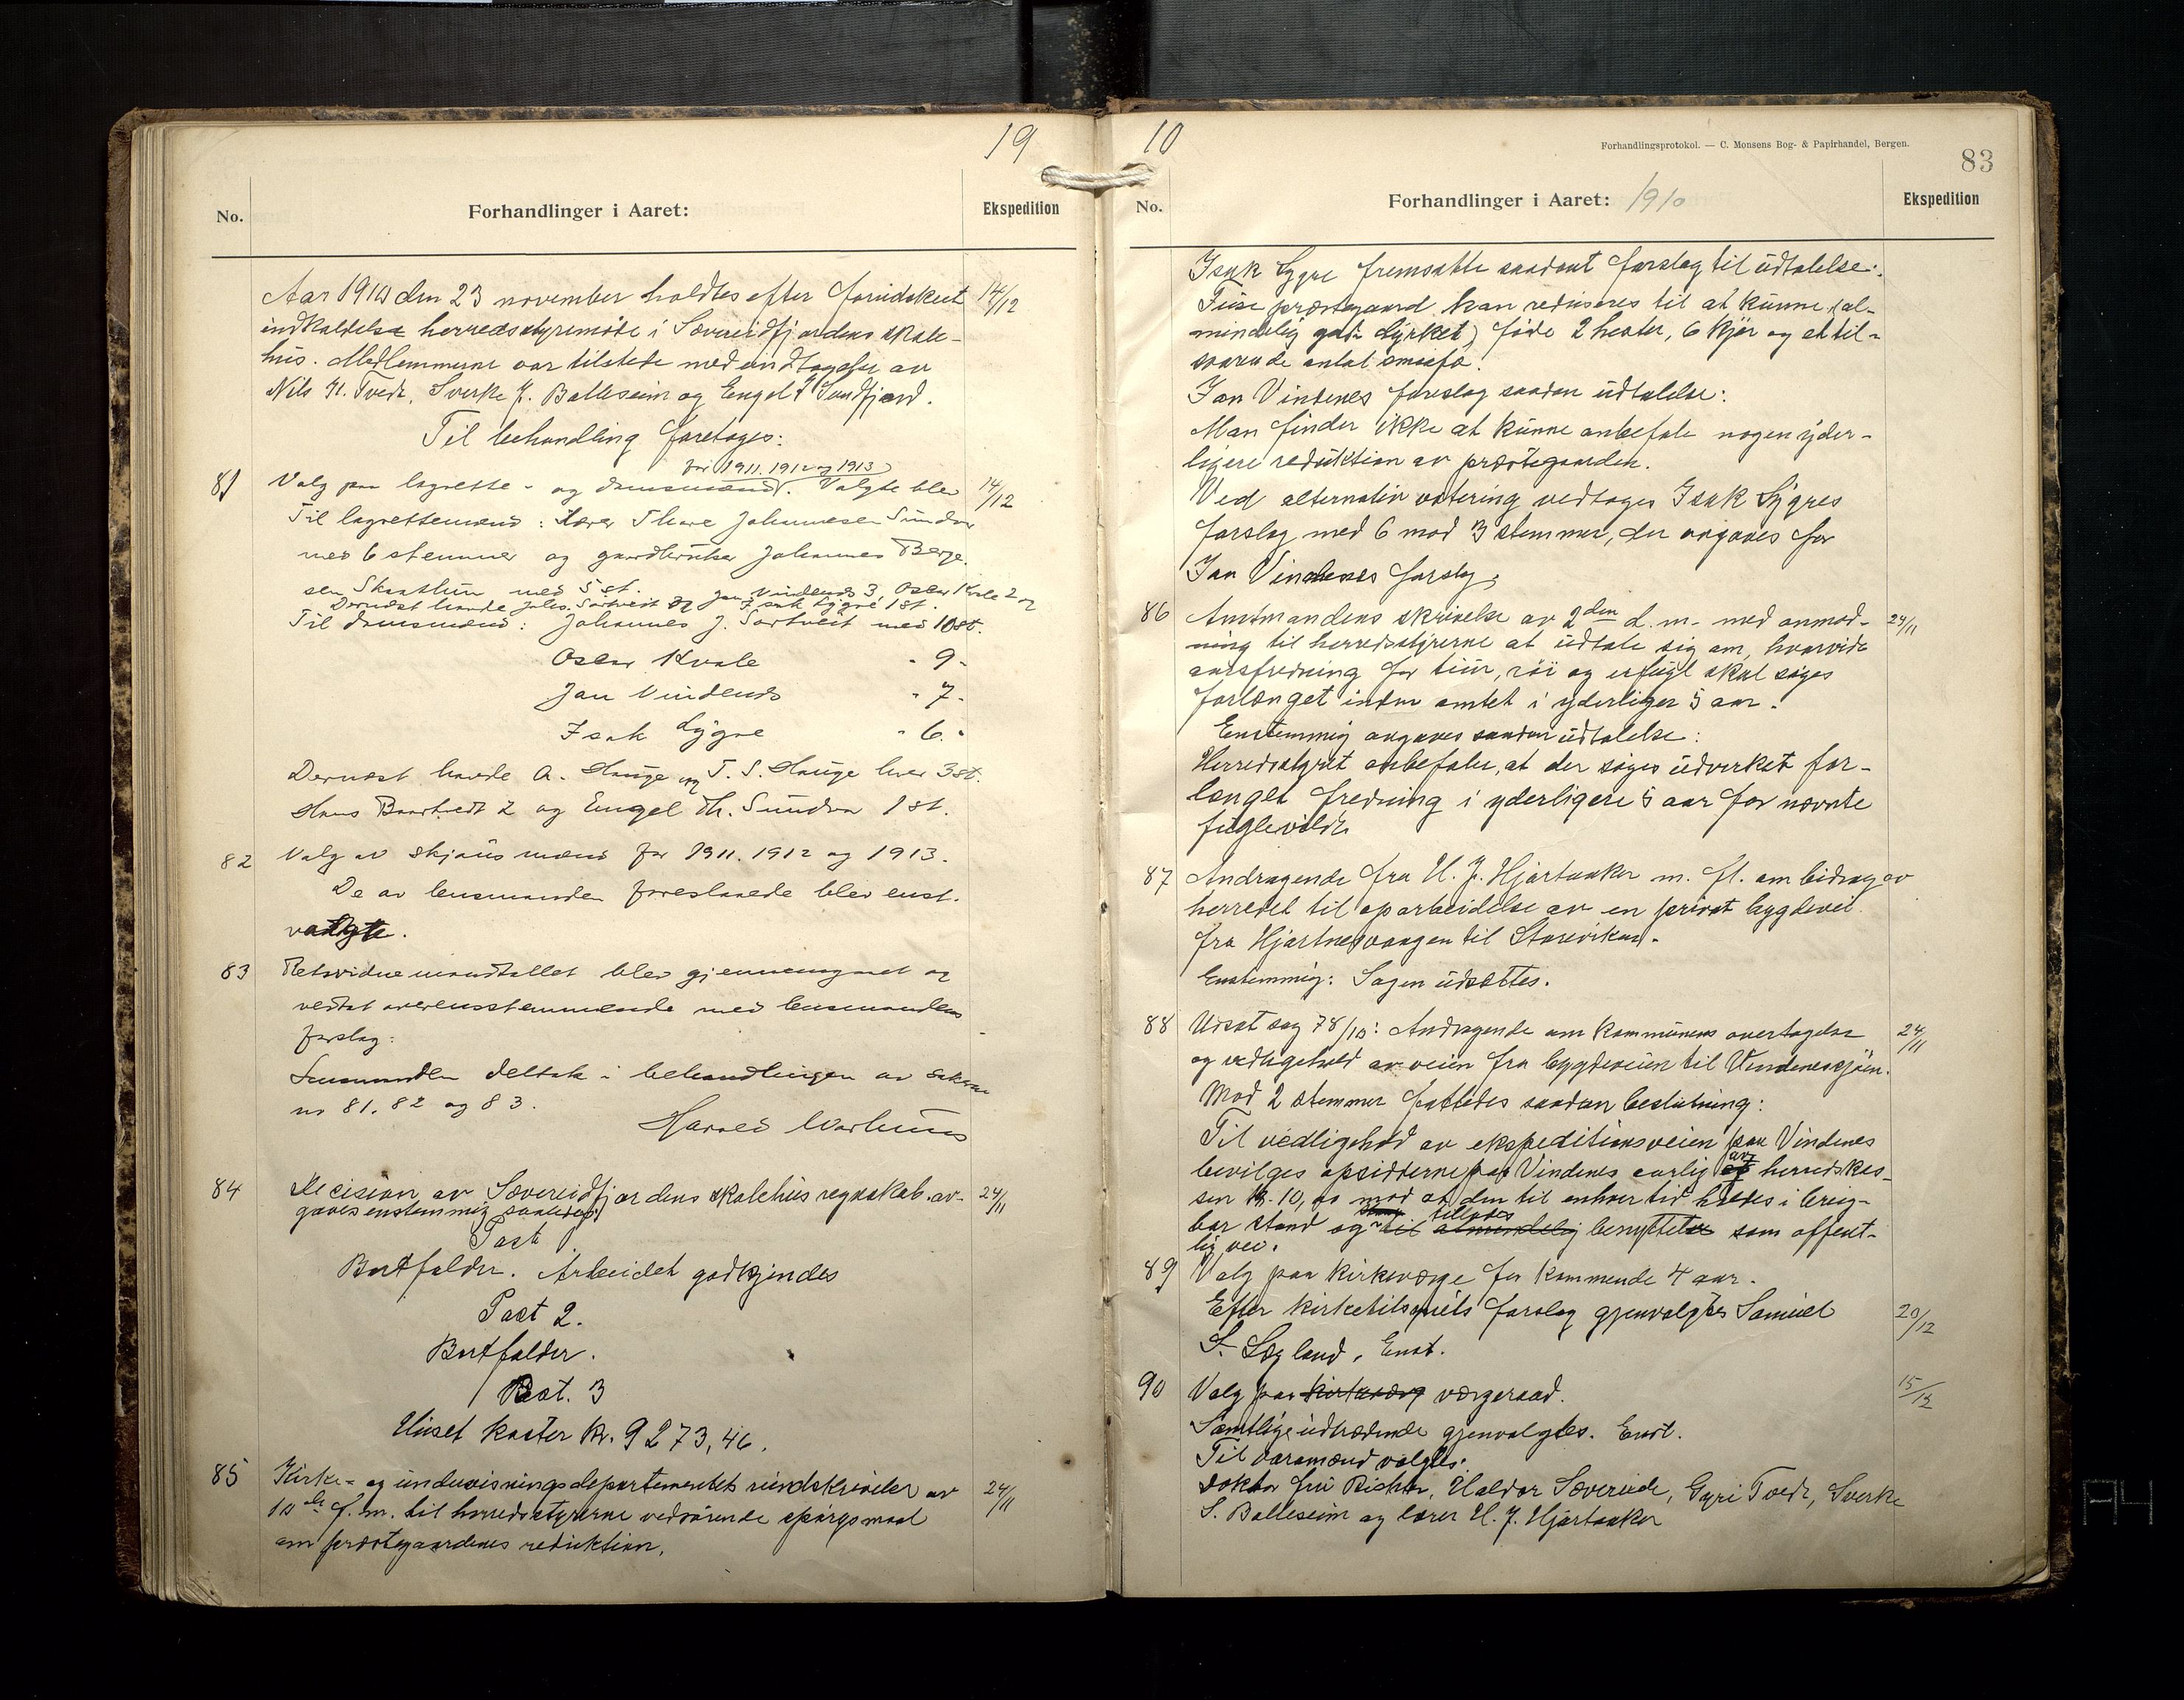 19
No.
Forhandlinger i Aaret:
Ekspedition
Aar 1910 den 23 november holdtes efter forutskeet 14/12
indkaldelse herredsstyremöte i Sævereidfjordens skole-
hus. Medlemmene var tilstede med undtagelse av
Nils H. Tvedt, Sverke J. Balleseim og Engel T Sundfjord.
Til behandling foretoges:
for 1911. 1912 og 1913
81 Valg paa lagrette- og domsmænd. Valgte blev 14/12
Til lagrettemænd: Lærer Thore Johannesen Sundvor
med 6 stemmer og gaardbruker Johannes Berge
sen Skaathun med 5 st. Jan Vindenes 3, Oscar Kvale 2 og
Dernæst havde Johs. Sortveit og Isak Lygre 1 st.
Til domsmænd: Johannes J. Sortveit med 10 st.
Oscar Kvale - 9 -
Jan Vindenes - 7 -
Isak Lygre - 6 -
Dernæst havde A. Hauge og T. S. Hauge hver 3 st.
Hans Baartvedt 2 og Engel Th. Sundvor 1 st.
82 Valg av skjönsmænd for 1911. 1912 og 1913.
De av lensmanden foreslaaede blev enst.
valgte.
83 Retsvidnemandtallet blev gjennemgaaet og
vedtat overensstemmende med lensmandens
forslag.
Lensmanden deltok i behandlingen av sakene
no 81. 82 og 83.
Harald Warhuus
84 Decision av Sævereidfjordens skolehus regnskab. av- 24/11
gaves enstemmig saaledes:
Post 1
Bortfalder. Arbeidet godkjendes
Post 2.
Bortfalder.
Post. 3
Huset koster kr. 9273,46.
85 Kirke- og undervisningsdepartementets rundskrivelse av 24/11
10de f. m. til herredsstyrerne vedrörende spörgsmaal
om præstegaardenes reduktion.
10
Forhandlingsprotokol. — C. Monsens Bog- & Papirhandel, Bergen.
83
No.
Forhandlinger i Aaret: 1910
Ekspedition
Isak Lygre fremsatte saadant forslag til udtalelse:
Fuse præstegaard kan reduseres til at kunne (al-
mindelig godt dyrket) föde 2 hester, 6 kjör og et til-
svarende antal smaafe.
Jan Vindenes foreslog saadan udtalelse:
Man finder ikke at kunne anbefale nogen yder-
ligere reduktion av præstegaarden.
Ved alternativ votering vedtoges Isak Lygres
forslag med 6 mod 3 stemmer, der avgaves for
Jan Vindenes forslag.
86 Amtmandens skrivelse av 2den d. m. med anmod- 24/11
ning til herredsstyrerne at udtale sig om, hvorvidt
aarsfredning for tiur, röi og orfugl skal söges
forlænget inden amtet i yderligere 5 aar.
Enstemmig avgaves saadan udtalelse:
Herredsstyret anbefaler, at der söges udvirket for-
længet fredning i yderligere 5 aar for nævnte
fuglevildt.
87 Andragende fra H. J. Hjartaaker m. fl. om bidrag av
herredet til oparbeidelse av en privat bygdevei
fra Hjartnesvaagen til Storevikens.
Enstemmig: Sagen udsættes.
88 Udsat sag 78/10: Andragende om kommunens overtagelse 24/11
og vedligehold av veien fra bygdeveien til Vindeneskjöen.
Mod 2 stemmer fattedes saadan beslutning:
Til vedlighold av ekspeditionsveien paa Vindenes
bevilges opsidderne paa Vindenes aarlig av herredskas-
sen kr. 10,00 mod at den til enhver tid holdes i brug-
bar stand og tillades til almindelig benyttelse som offent-
lig vei.
89 Valg paa kirkeværge for kommende 4 aar.
Efter kirketilsynets forslag gjenvalgtes Samuel 20/12
S. Lægland, Enst.
90 Valg paa kirkeværg værgeraad. 15/12
Samtlige udtrædende gjenvalgtes. Enst.
Til varamænd valgtes:
Doktor fru Richter, Haldor Sævereide, Guri Tvedt, Sverke
S. Balleseim og lærer H. J. Hjartaaker